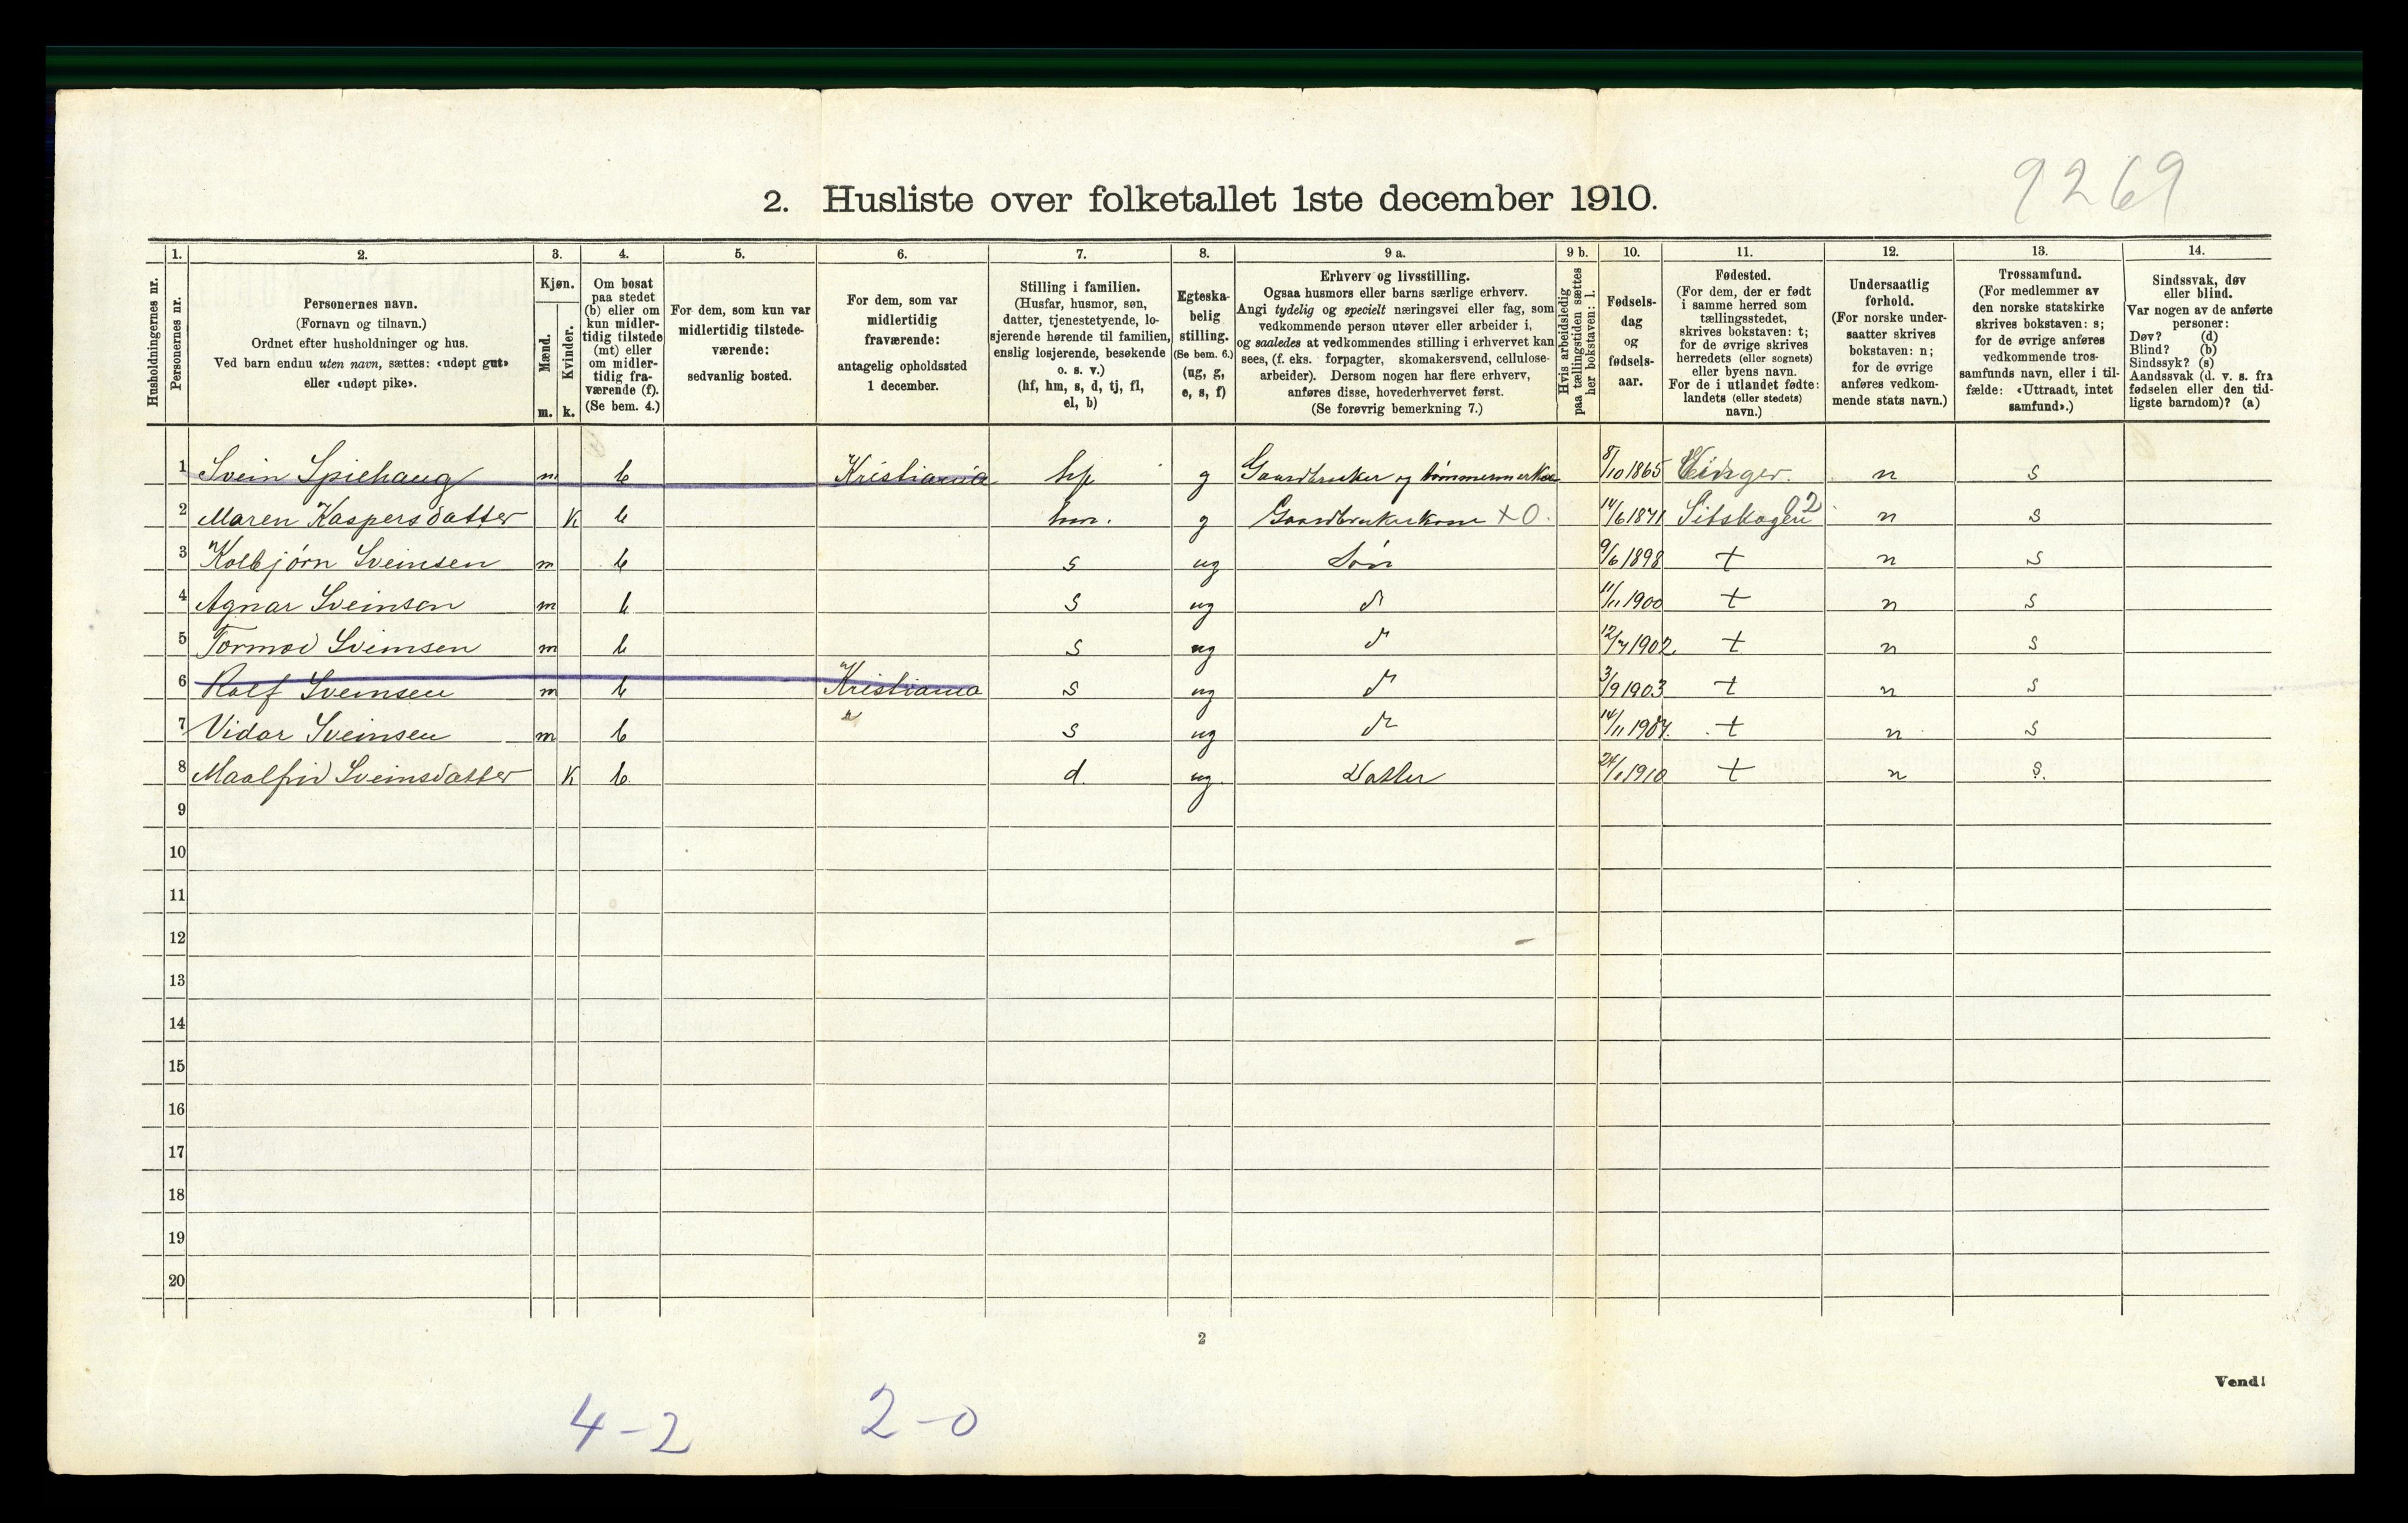 9269
2. Husliste over folketallet 1ste december 1910.
Husholdningernes nr.
1.
Personernes nr.
2.
Personernes navn.
(Fornavn og tilnavn.)
Ordnet efter husholdninger og hus.
Ved barn endnu uten navn, sættes: «udøpt gut»
eller «udøpt pike».
3.
Kjøn.
Mænd.
Kvinder.
m. k.
4.
Om bosat
paa stedet
(b) eller om
kun midler-
tidig tilstede
(mt) eller
om midler-
tidig fra-
værende (f).
(Se bem. 4.)
5.
For dem, som kun var
midlertidig tilstede-
værende:
sedvanlig bosted.
6.
For dem, som var
midlertidig
fraværende:
antagelig opholdssted
1 december.
7.
Stilling i familien.
(Husfar, husmor, søn,
datter, tjenestetyende, lo-
sjerende hørende til familien,
enslig losjerende, besøkende
o. s. v.)
(hf, hm, s, d, tj, fl,
el, b)
8.
Egteska-
belig
stilling.
(Se bem. 6.)
(ug, g,
e, s, f)
9 a.
Erhverv og livsstilling.
Ogsaa husmors eller barns særlige erhverv.
Angi tydelig og specielt næringsvei eller fag, som
vedkommende person utøver eller arbeider i,
og saaledes at vedkommendes stilling i erhvervet kan
sees, (f. eks. forpagter, skomakersvend, cellulose-
arbeider). Dersom nogen har flere erhverv,
anføres disse, hovederhvervet først.
(Se forøvrig bemerkning 7.)
9 b.
Hvis arbeidsledig
paa tællingstiden sættes
her bokstaven: l.
10.
Fødsels-
dag
og
fødsels-
aar.
11.
Fødested.
(For dem, der er født
i samme herred som
tællingsstedet,
skrives bokstaven: t;
for de øvrige skrives
herredets (eller sognets)
eller byens navn.
For de i utlandet fødte:
landets (eller stedets)
navn.)
12.
Undersaatlig
forhold.
(For norske under-
saatter skrives
bokstaven: n;
for de øvrige
anføres vedkom-
mende stats navn.)
13.
Trossamfund.
(For medlemmer av
den norske statskirke
skrives bokstaven: s;
for de øvrige anføres
vedkommende tros-
samfunds navn, eller i til-
fælde: «Uttraadt, intet
samfund».)
14.
Sindssvak, døv
eller blind.
Var nogen av de anførte
personer:
Døv? (d)
Blind? (b)
Sindssyk? (s)
Aandssvak (d. v. s. fra
fødselen eller den tid-
ligste barndom)? (a)
1 Svein Spiehaug m b Kristiania hf g Gaardbruker og tømmermerker 8/10 1865 n s
2 Maren Kaspersdatter k b hm. g Gaardbrukerkone +0. 14/6 1871 Sitskogen 02 n s
3 Kolbjørn Sveinsen m b s ug Søn 9/6 1898 t n s
4 Agnar Sveinsen m b s ug d⁰ 11/11 1900 t n s
5 Tormod Sveinsen m b s ug d⁰ 12/7 1902. t n s
6 Rolf Sveinsen m b Kristiania s ug d⁰ 3/9 1903 t n s
7 Vidar Sveinsen m b " s ug d⁰ 14/11 1907. t n s
8 Maalfrid Sveinsdatter k b d. ug. Datter 24/1 1910 t n s.
9
10
11
12
13
14
15
16
17
18
19
20
2
Vend!
4-2 2-0